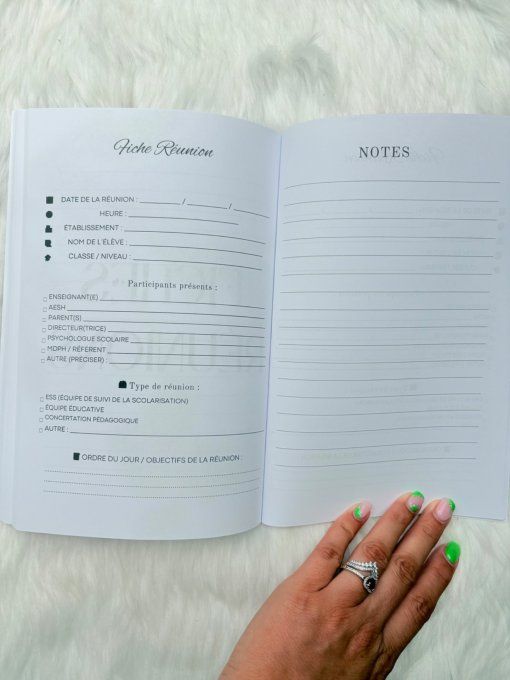 Fiche Réunion
DATE DE LA RÉUNION : ________ / ________ / ________
HEURE :
ÉTABLISSEMENT :
NOM DE L'ÉLÈVE :
CLASSE / NIVEAU :
Participants présents :
ENSEIGNANT(E)
AESH
PARENT(S)
DIRECTEUR(TRICE)
PSYCHOLOGUE SCOLAIRE
MDPH / RÉFERENT
AUTRE (PRÉCISER) :
Type de réunion :
ESS (ÉQUIPE DE SUIVI DE LA SCOLARISATION)
ÉQUIPE ÉDUCATIVE
CONCERTATION PÉDAGOGIQUE
AUTRE :
ORDRE DU JOUR / OBJECTIFS DE LA RÉUNION :
NOTES